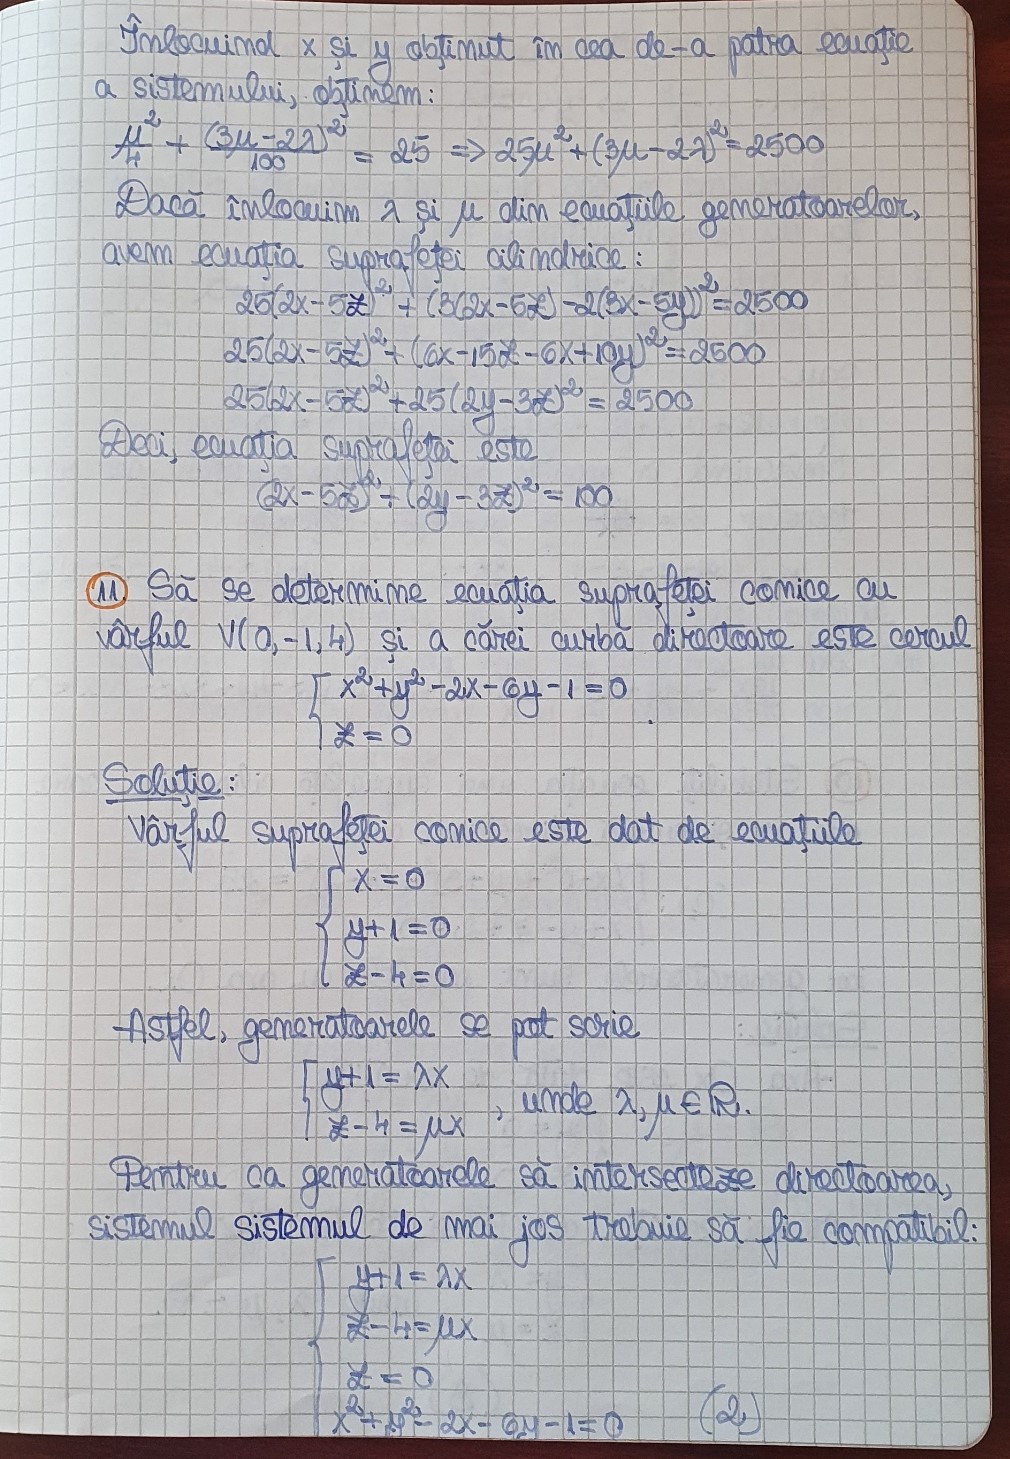 Înlocuind x și y obținut în cea de-a patra ecuație
a sistemului, obținem:
μ²/4 + (3μ-2λ)²/100 = 25 => 25μ²+(3μ-2λ)²=2500
Dacă înlocuim λ și μ din ecuațiile generatoarelor,
avem ecuația suprafeței cilindrice:
25(2x-5z)² + (3(2x-5z)-2(3x-5y))²=2500
25(2x-5z)²+(6x-15z-6x+10y)²=2500
25(2x-5z)²+25(2y-3z)²=2500
Deci, ecuația suprafeței este
(2x-5z)²+(2y-3z)²=100
11. Să se determine ecuația suprafeței conice cu
vârful V(0,-1,4) și a cărei curbă directoare este cercul
{ x²+y²-2x-6y-1=0
z=0 .
Soluție:
Vârful suprafeței conice este dat de ecuațiile
{ x=0
y+1=0
z-4=0
Astfel, generatoarele se pot scrie
{ y+1=λx
z-4=μx , unde λ,μ∈ℝ.
Pentru ca generatoarele să intersecteze directoarea,
sistemul sistemul de mai jos trebuie să fie compatibil:
{ y+1=λx
z-4=μx
z=0
x²+y²-2x-6y-1=0 (2)